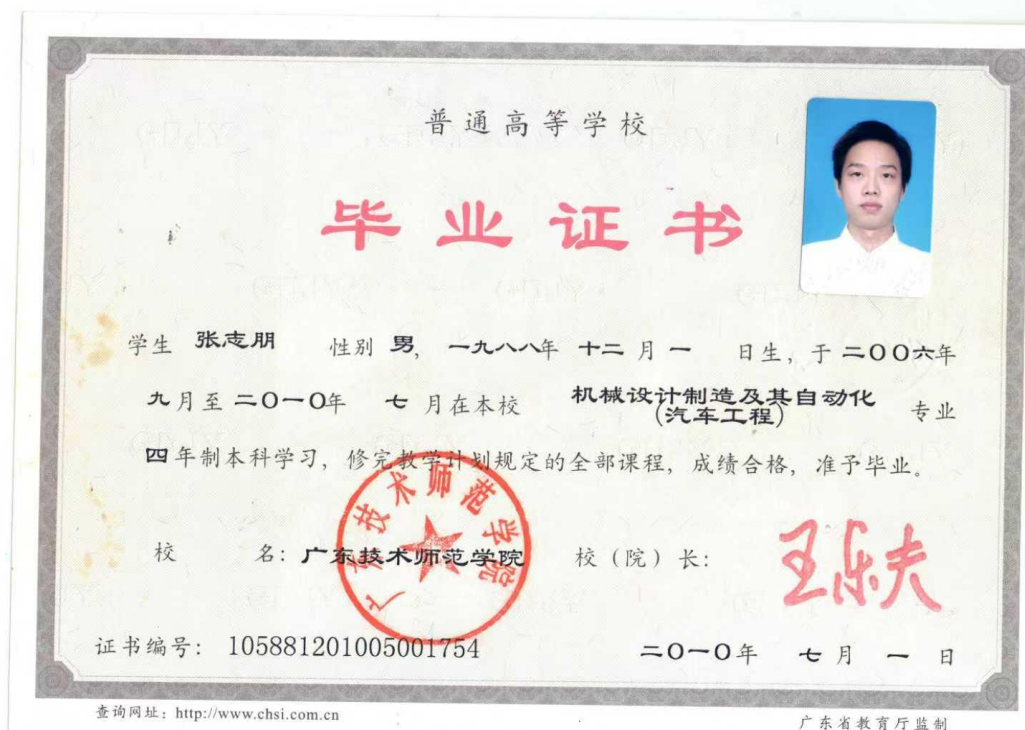 普通高等学校
毕业证书
学生 张志朋 性别 男，一九八八年 十二 月 一 日生，于 二〇〇六年
九月至 二〇一〇年 七 月在本校 机械设计制造及其自动化 专业
（汽车工程）
四年制本科学习，修完教学计划规定的全部课程，成绩合格，准予毕业。
校 名：广东技术师范学院 校（院）长：王乐夫
广东技术师范学院
证书编号：105881201005001754 二〇一〇年 七 月 一 日
查询网址：http://www.chsi.com.cn 广东省教育厅监制